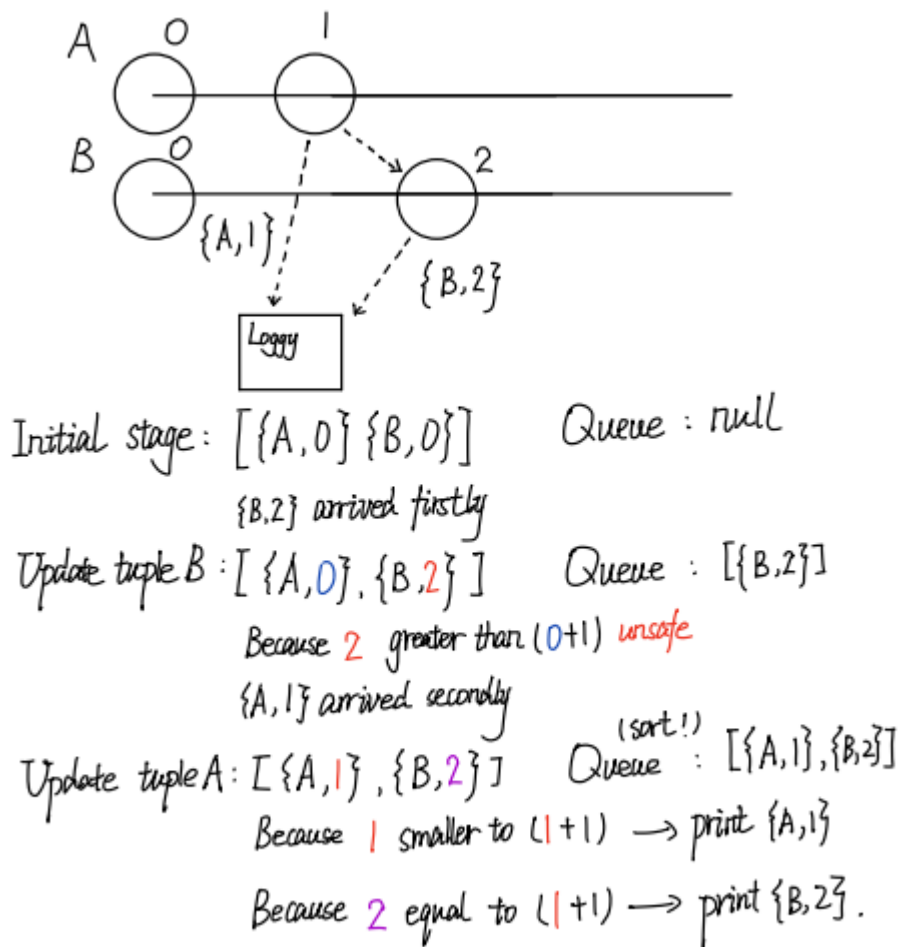 A 0 1
B 0 2
{A,1}
{B,2}
Loggy
Initial stage: [{A,0} {B,0}] Queue : null
{B,2} arrived firstly
Update tuple B : [ {A,0}, {B,2} ] Queue : [{B,2}]
Because 2 greater than (0+1) unsafe
{A,1} arrived secondly
(sort!)
Update tuple A : [ {A,1} , {B,2} ] Queue : [{A,1},{B,2}]
Because 1 smaller to (1+1) → print {A,1}
Because 2 equal to (1+1) → print {B,2}.